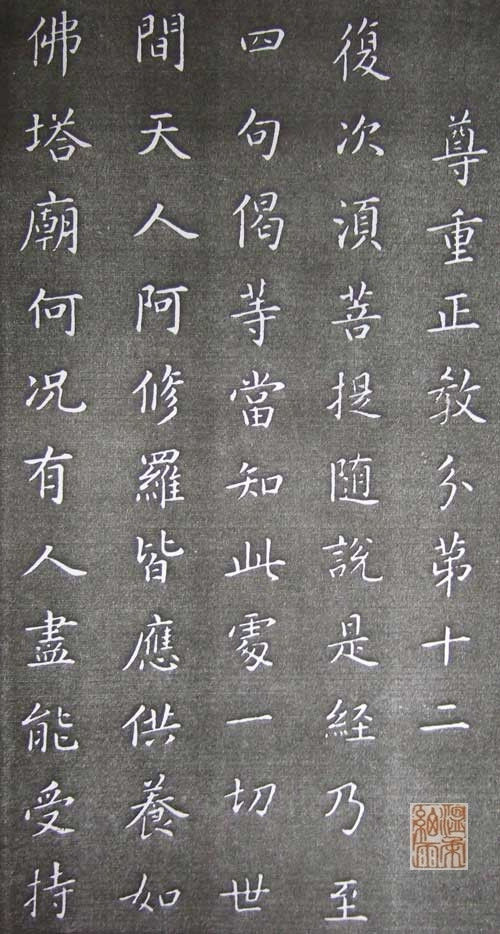 尊重正教分第十二
復次湏菩提随說是経乃至
四句偈等當知此處一切世
間天人阿修羅皆應供養如
佛塔廟何况有人盡能受持